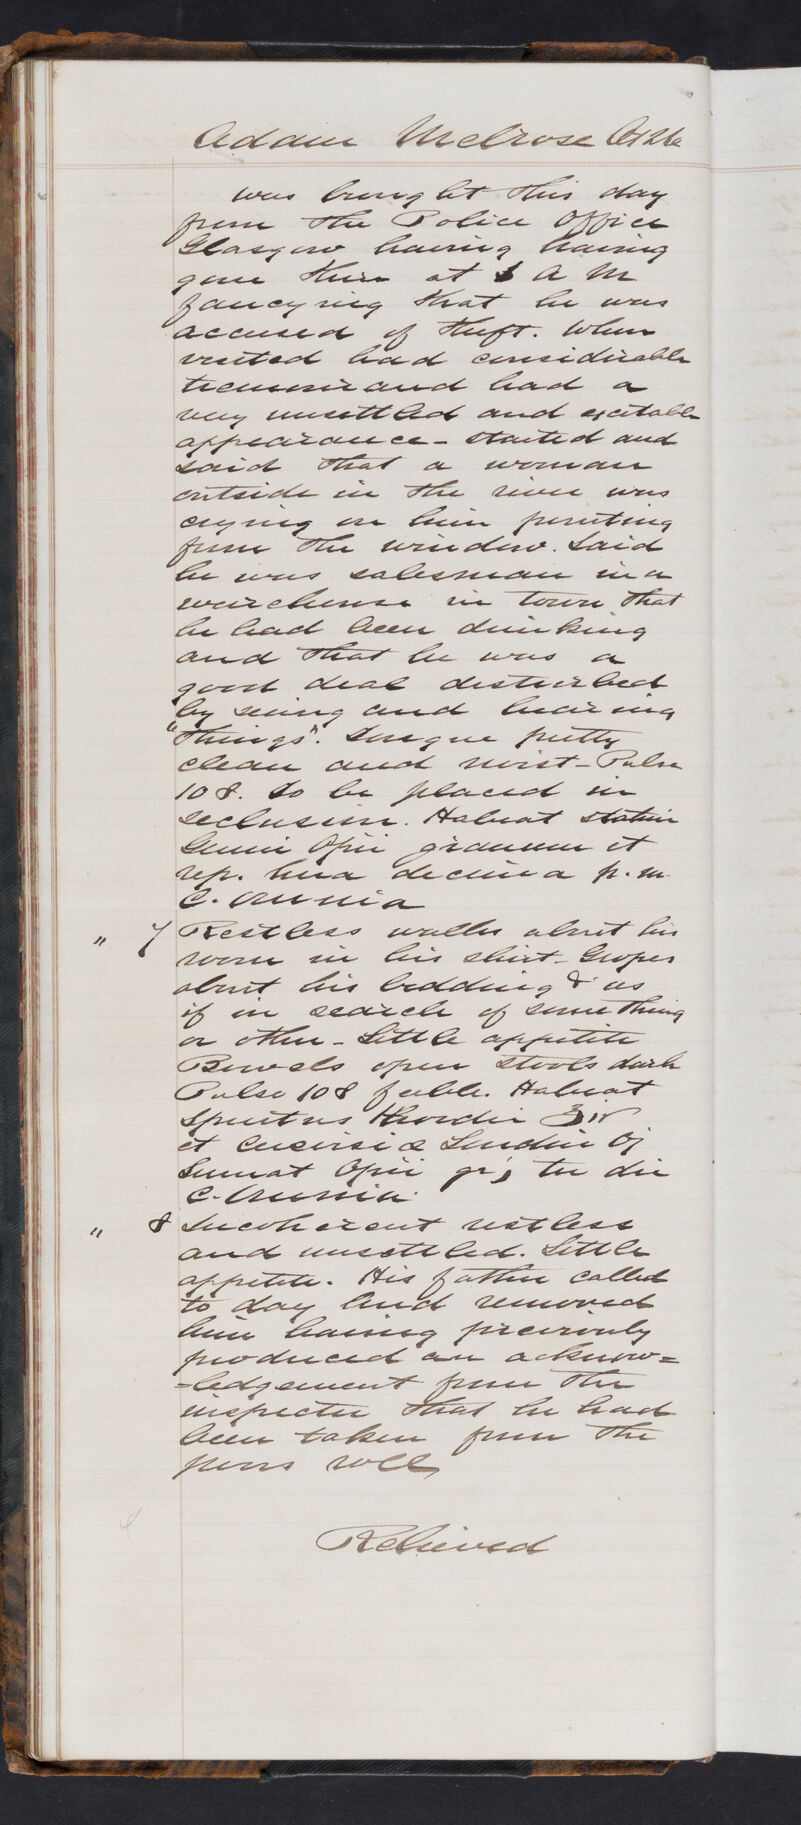 Adam Melrose At 26
was brought this day
from the Police Office
Glasgow having having
gone there at A M
fancying that he was
accused of theft. When
visited had considerable
tremor and had a
very unsettled and excitable
appearance - started and
said that a woman
outside in the river was
crying on him pointing
from the window. Said
he was salesman in a
warehouse in town that
he had been drinking
and that he was a
good deal disturbed
by seeing and hearing
"things". Tongue pretty
clean and moist - Pulse
108. To be placed in
seclusion. Habeat statim
Gumi Opii granum et
rep. hora decima p. m.
C. omnia
" 7 Restless walks about his
room in his shirt - Gropes
about his bedding & as
if in search of some thing
or other - Little appetite
Bowels open Stools dark
Pulse 108 feeble. Habeat
Spiritus ℥iv
et Cerevisiæ Oj
Sumat Opii gr j ter die
C. Omnia
" 8 Incoherent restless
and unsettled. Little
appetite. His father called
to day and removed
him having previously
produced an acknow=
-ledgement from the
inspector that he had
been taken from the
poors roll
Relieved